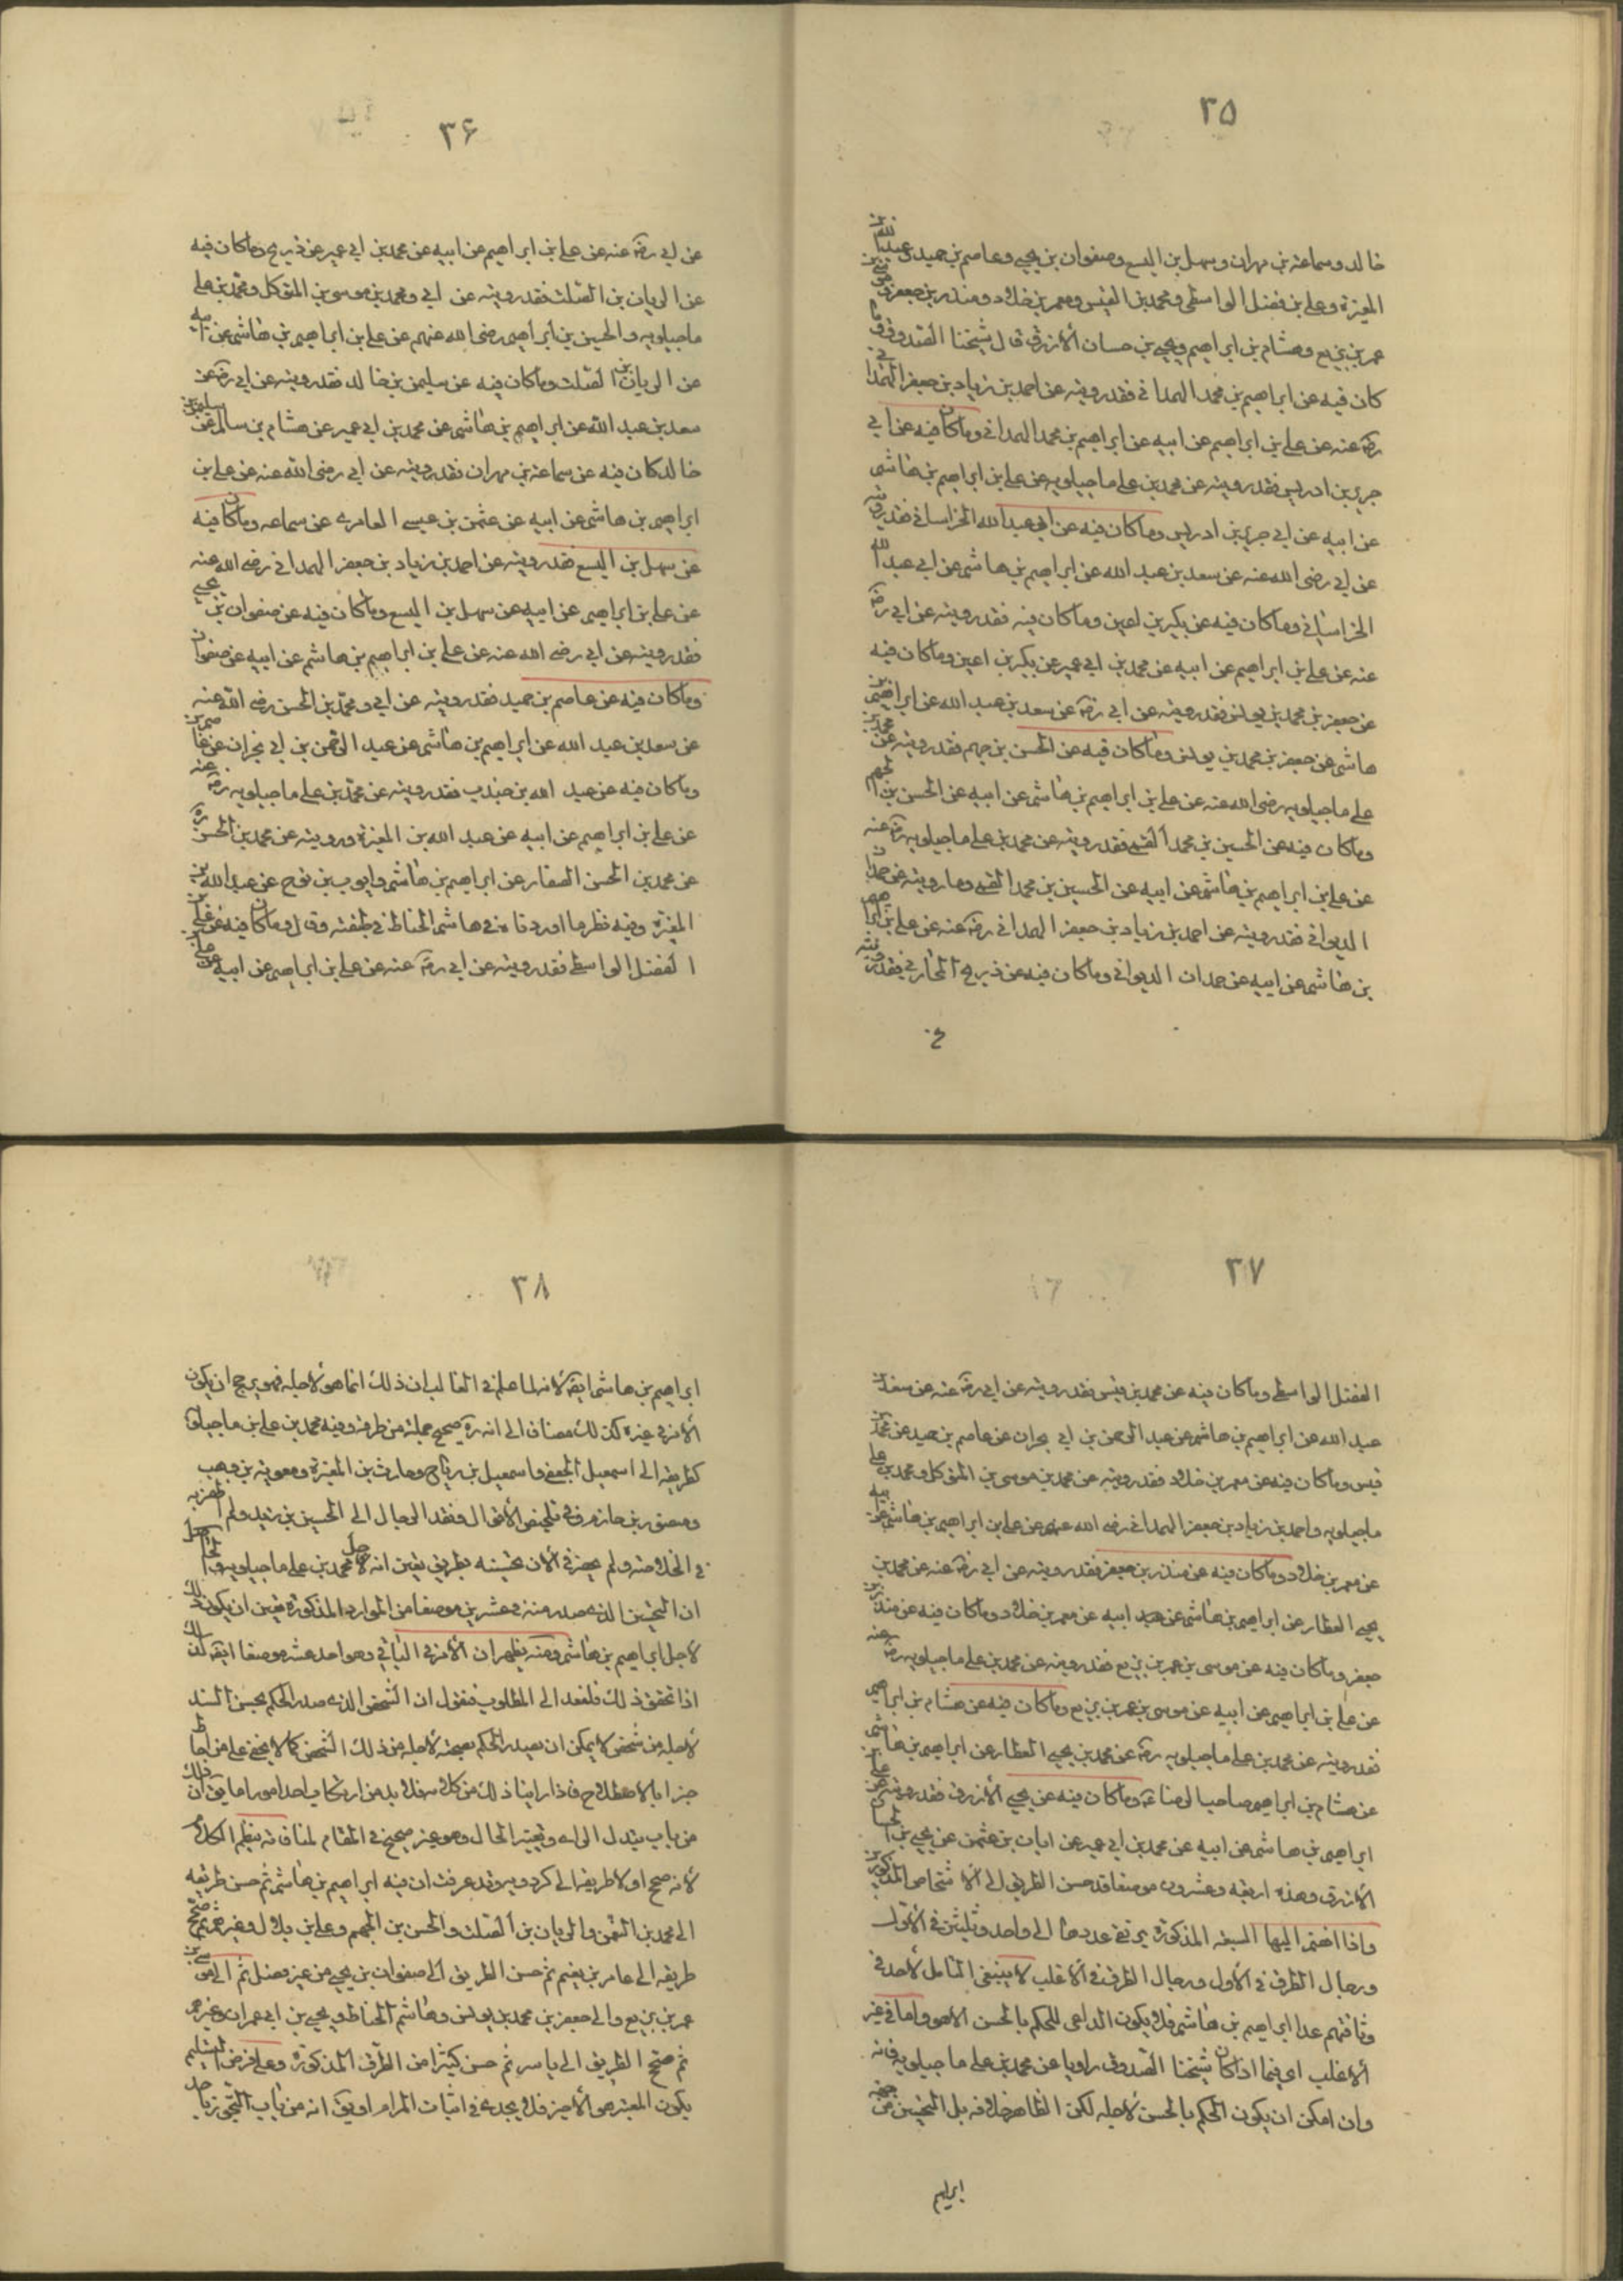 ٣٥
خالد وسماعة بن مهران وسهل بن اليسع وصفوان بن يحيى وعاصم بن حميد وعبد الله بن
المغيرة وعلى بن فضل الواسطى ومحمد بن القيس ومعمر بن خلاد ومنذر بن جعفر وموسى بن
عمر بن بزيع وهشام بن ابراهيم ويحيى بن حسان الأزرق قال شيخنا الصدوق وما
كان فيه عن ابراهيم بن محمد الهمدانى فقد رويته عن احمد بن زياد بن جعفر الهمدانى
رضه عنه عن على بن ابراهيم عن ابيه عن ابراهيم بن محمد الهمدانى وما كان فيه عن ابى
جرير بن ادريس فقد رويته عن محمد بن على ماجيلويه عن على بن ابراهيم بن هاشم
عن ابيه عن ابى جرير بن ادريس وما كان فيه عن ابى عبد الله الخراسانى فقد رويته
عن ابى رضى الله عنه عن سعد بن عبد الله عن ابراهيم بن هاشم عن ابى عبد الله
الخراسانى وما كان فيه عن بكير بن اعين وما كان فيه فقد رويته عن ابى رضه
عنه عن على بن ابراهيم عن ابيه عن محمد بن ابى عمير عن بكير بن اعين وما كان فيه
عن جعفر بن محمد بن يونس فقد رويته عن ابى رضه عن سعد بن عبد الله عن ابراهيم بن
هاشم عن جعفر بن محمد بن يونس وما كان فيه عن الحسن بن جهم فقد رويته عن محمد بن
على ماجيلويه رضى الله عنه عن على بن ابراهيم بن هاشم عن ابيه عن الحسن بن الجهم
وما كان فيه عن الحسين بن محمد القمى فقد رويته عن محمد بن على ماجيلويه رضه عنه
عن على بن ابراهيم بن هاشم عن ابيه عن الحسين بن محمد القمى وما رويته عن حمدان
الديوانى فقد رويته عن احمد بن زياد بن جعفر الهمدانى رضه عنه عن على بن ابراهيم
بن هاشم عن ابيه عن حمدان الديوانى وما كان فيه عن ذريح المحاربى فقد رويته
عن
٣۶
عن ابى رضه عنه عن على بن ابراهيم عن ابيه عن محمد بن ابى عمير عن ذريح وما كان فيه
عن الريان بن الصلت فقد رويته عن ابى ومحمد بن موسى بن المتوكل ومحمد بن على
ماجيلويه والحسين بن ابراهيم رضى الله عنهم عن على بن ابراهيم بن هاشم عن ابيه
عن الريان بن الصلت وما كان فيه عن سليمن بن خالد فقد رويته عن ابى رضه عن
سعد بن عبد الله عن ابراهيم بن هاشم عن محمد بن ابى عمير عن هشام بن سالم عن سليمن بن
خالد كان فيه عن سماعة بن مهران فقد رويته عن ابى رضى الله عنه عن على بن
ابراهيم بن هاشم عن ابيه عن عثمن بن عيسى العامرى عن سماعه وما كان فيه
عن سهل بن اليسع فقد رويته عن احمد بن زياد بن جعفر الهمدانى رضى الله عنه
عن على بن ابراهيم عن ابيه عن سهل بن اليسع وما كان فيه عن صفوان بن يحيى
فقد رويته عن ابى رضى الله عنه عن على بن ابراهيم بن هاشم عن ابيه عن صفوان
وما كان فيه عن عاصم بن حميد فقد رويته عن ابى ومحمد بن الحسن رضى الله عنه
عن سعد بن عبد الله عن ابراهيم بن هاشم عن عبد الرحمن بن ابى نجران عن عاصم بن
وما كان فيه عن عبد الله بن جندب فقد رويته عن محمد بن على ماجيلويه رضه عنه
عن على بن ابراهيم عن ابيه عن عبد الله بن المغيرة ورويته عن محمد بن الحسن ره
عن محمد بن الحسن الصفار عن ابراهيم بن هاشم وايوب بن نوح عن عبد الله بن
المغيرة وفيه نظر ما اوردناه فى هاشم الحناط فى طبقته وقال وما كان فيه عن على بن
الفضل الواسطى فقد رويته عن ابى رضه عنه عن على بن ابراهيم عن ابيه عن على بن
٣٧
الفضل الواسطى وما كان فيه عن محمد بن قيس فقد رويته عن ابى رضه عنه عن سعد بن
عبد الله عن ابراهيم بن هاشم عن عبد الرحمن بن ابى نجران عن عاصم بن حميد عن محمد بن
قيس وما كان فيه عن معمر بن خلاد فقد رويته عن محمد بن موسى بن المتوكل ومحمد بن على
ماجيلويه واحمد بن زياد بن جعفر الهمدانى رضى الله عنهم عن على بن ابراهيم بن هاشم عن ابيه
عن معمر بن خلاد وما كان فيه عن منذر بن جعفر فقد رويته عن ابى رضه عنه عن محمد بن
يحيى العطار عن ابراهيم بن هاشم عن ابيه عن معمر بن خلاد وما كان فيه عن منذر بن
جعفر وما كان فيه عن موسى بن عمر بن بزيع فقد رويته عن محمد بن على ماجيلويه رضه عنه
عن على بن ابراهيم عن ابيه عن موسى بن عمر بن بزيع وما كان فيه عن هشام بن ابراهيم
فقد رويته عن محمد بن على ماجيلويه رضه عن محمد بن يحيى العطار عن ابراهيم بن هاشم
عن هشام بن ابراهيم صاحب الرضا ع وما كان فيه عن يحيى الأزرق فقد رويته عن على بن
ابراهيم بن هاشم عن ابيه عن محمد بن ابى عمير عن ابان بن عثمن عن يحيى بن الحسان
الأزرق وهذه اربعة وعشرون موضعا قد حسن الطريق الى الاشخاص المذكورين
واذا انضم اليها السبعه المذكورة يرتقى عددها الى واحد وثلثين فى الأول
ورجال الطرق فى الأول ورجال الطرق فى الاغلب لا ينبغى التامل لأحد فى
وثاقتهم عدا ابراهيم بن هاشم فلا يكون الداعى للحكم بالحسن الا هو واما فى غير
الأغلب اى فيما اذا كان شيخنا الصدوق راويا عن محمد بن على ماجيلويه فانه
وان امكن ان يكون الحكم بالحسن لأجله لكن الظاهر خلافه بل التحسين من جهة
ابراهيم
٣٨
ابراهيم بن هاشم ايضا لانه لما علم فى الغالب ان ذلك انما هو لأجله فهو يرجح ان يكون
الأمر فى غيره كذلك مضافا الى انه ره صحح جملة من طرقه وفيه محمد بن على بن ماجيلويه
كطريقه الى اسمعيل الجعفى واسمعيل بن رياح وحارث بن المغيرة ومعوية بن وهب
ومنصور بن حازم وفى تلخيص الأقوال وفقد الرجال الى الحسين بن زيد ولم
فى الخلاصة ولم يحضرنى الآن تحسينه بطريق يقين انه لأجل محمد بن على ماجيلويه
ان التحسين الذى صدر منه فى عشرين موضعا من الموارد المذكورة تعين ان يكون ذلك
لاجل ابراهيم بن هاشم ومنه يظهر ان الأمر فى الباقى وهو احد عشر موضعا ايضا كذلك
اذا تحقق ذلك فلنعد الى المطلوب فنقول ان الشخص الذى صدر الحكم بحسن السند
لأجله من شخص لا يمكن ان يصدر الحكم بصحته لأجله من ذلك الشخص كما لا يخفى على من احاط
خبرا بالاصطلاح فاذا راينا ذلك من كلامه فلا بد من ارتكاب احد امور اما يق ان ذلك
من باب تبدل الراى وتغيير الحال وهو غير صحيح فى المقام لمنافاته بنظم الكلام
لأنه صحح اولا طريقه الى كردويه وقد عرفت ان فيه ابراهيم بن هاشم ثم حسن طريقه
الى محمد بن النعمن والريان بن الصلت والحسن بن الجهم وعلى بن بلال وغيرهم ثم صحح
طريقه الى عامر بن نعيم ثم حسن الطريق الى صفوان بن يحيى من غير فصل ثم الى موسى بن
عمر بن بزيع والى جعفر بن محمد بن يونس وهاشم الحناط ويحيى بن ابى عمران وغيرهم
ثم صحح الطريق الى ياسر ثم حسن كثيرا من الطرق المذكورة وعلى فرض التسليم
يكون المعتبر هو الأخير فلا يجدى فى اثبات المرام او يق انه من باب التجوز بأ